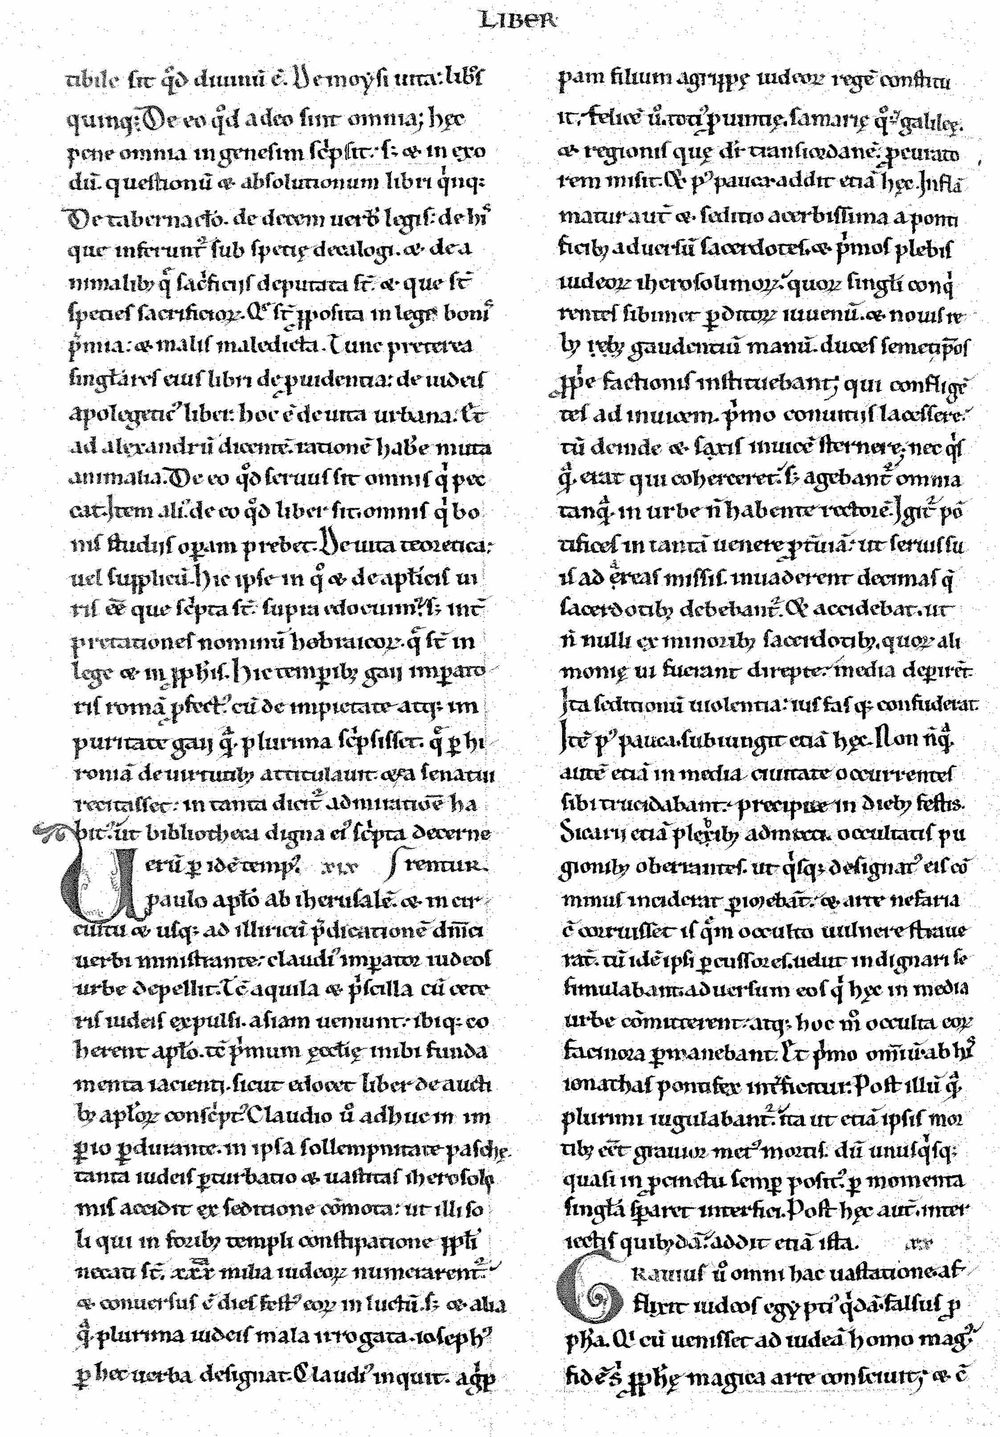 LIBER
tibile sit qd̄ diuinū ē. De moysi uita: lib̄s
quinq;. De eo qd̄ a deo sint omnia; hęc
pene omnia in genesim sc̄psit. s; & in exo
dū. questionū & absolutionum libri q̄nq;
De tabernac̄lo. de decem uerb̄ legis: de his
que inferunt̄ sub specię decalogi. & de a
nimalib; q̄ sac̄ficiis deputata st̄. & que st̄
species sacrificior. Q st̄ pposita in lege boni
p̄mia: & malis maledicta. Tunc preterea
singl̄ares eius libri de puidentia: de iudeis
apolegetic' liber. hoc ē de uita urbana. Et
ad alexandrū dicentē. rationē habe muta
animalia. De eo qd̄ seruus sit omnis q̄ pec
cat. Item ali'. de eo qd̄ liber sit. omnis q̄ bo
nis studiis opam prebet. De uita teoretica:
uel supplicū. hic ipse in q° & de apl̄icis ui
ris eē que sc̄pta st̄. supra edocuim'. s; int̄
pretationes nominū hebraicor. q̄ st̄ in
lege & in pph̄is. hic temporib; gaii imperato
ris romā pfect'. cū de impietate atq; im
puritate gaii q̄. plurima sc̄psisset. q̄ p hi
roniā de uirtutib; attitulauit. & ea senatui
recitasset: in tanta dicit̄ admiratiōe ha
bit': ut bibliotheca digna ei' sc̄pta decerne
erū p idē temp'. xix rentur.
paulo apl̄o ab iherusalē. & in cir
cuitu & usq; ad illiricū p̄dicationē dn̄ici
uerbi ministrante: claudi' imperator iudeos
urbe depellit. Tē aquila & p̄scilla cū cete
ris iudeis expulsi. asiam ueniunt: ibiq; co
herent apl̄o. tē p̄mum ęcclię inibi funda
menta iacienti. sicut edocet liber de acti
b; apl̄or consc̄pt'. Claudio ū adhuc in im
pio pdurante. in ipsa sollempnitate paschę
tanta iudeis pturbatio & uastitas iherosolo
mis accidit ex seditione cōmota: ut illi so
li qui in forib; templi constipatione ppl̄i
necati st̄. xxx milia iudeor numerarent̄.
& conuersus ē dies fest' eor in luctū. s; & alia
q̄. plurima iudeis mala irrogata. ioseph'
p hec uerba designat. Claudi' inquit. agrip
pam filium agrippę iudeor regē constitu
it. felicē ū. toti' puintię. samarię q; galileę.
& regionis quę dr̄ transiordanē. pcurato
rem misit. & p' pauca addit etiā hęc. Inflā
matur aut̄ & seditio acerbissima a ponti
ficib; aduersū sacerdotes. & p̄mos plebis
iudeor iherosolimor. quor singl̄i conq̄
rentes sibimet pditor iuuenū. & nouis re
b; reb; gaudentiū manū. duces semetip̄os
pp̄e factionis instituebant; qui confligē
tes ad inuicem. p̄mo conuitiis lacessere.
tū deinde & saxis inuicē sternere; nec q̄s
q̄. erat qui coherceret. s; agebant̄ omnia
tanq̄. in urbe n̄ habente rectorē. Igit̄ pō
tifices in tantā uenere ptruiā: ut seruis su
is ad ereas missis. inuaderent decimas q̄
sacerdotib; debebant̄. & accidebat. ut
n̄ nulli ex minorib; sacerdotib;. quor ali
monię ui fuerant direpte: media deperirēt.
Ita seditionū uiolentia: ius fas q; confuderat.
Itē p' pauca. subiungit etiā hęc. Non n̄q̄.
autē etiā in media ciuitate occurrentes
sibi trucidabant. precipue in dieb; festis.
Sicarii etiā pleb̄ib; admixti. occultatis pu
gionib; oberrantes. ut q̄sq; designat' eis cō
minus inciderat pimebāt. & arte nefaria
ē corruisset is q̄m occulto uulnere straue
rāt. tū idē ipsi pcussores. uelut indignari se
simulabant. aduersum eos q̄ hęc in media
urbe cōmitterent: atq; hoc m° occulta eor
facinora pmanebant. Et p̄mo omīū. ab his
ionathas pontifex int̄ficitur. Post illū q̄.
plurimi iugulabant̄. ita ut etiā ipsis mor
tib; eēt grauior met' mortis. dū unusq̄sq;
quasi in pcinctu semp posit'. p momenta
singl̄a sparet interfici. Post hęc aut̄. inter
iectis quibdā. addit etiā ista. xx
Grauius ū omni hac uastatione. af
flixit iudeos egypti' q̄dā. falsus p
ph̄a. Q cū uenisset ad iudeā homo mag'.
fidē s' pph̄ę magica arte consciuit; & ē